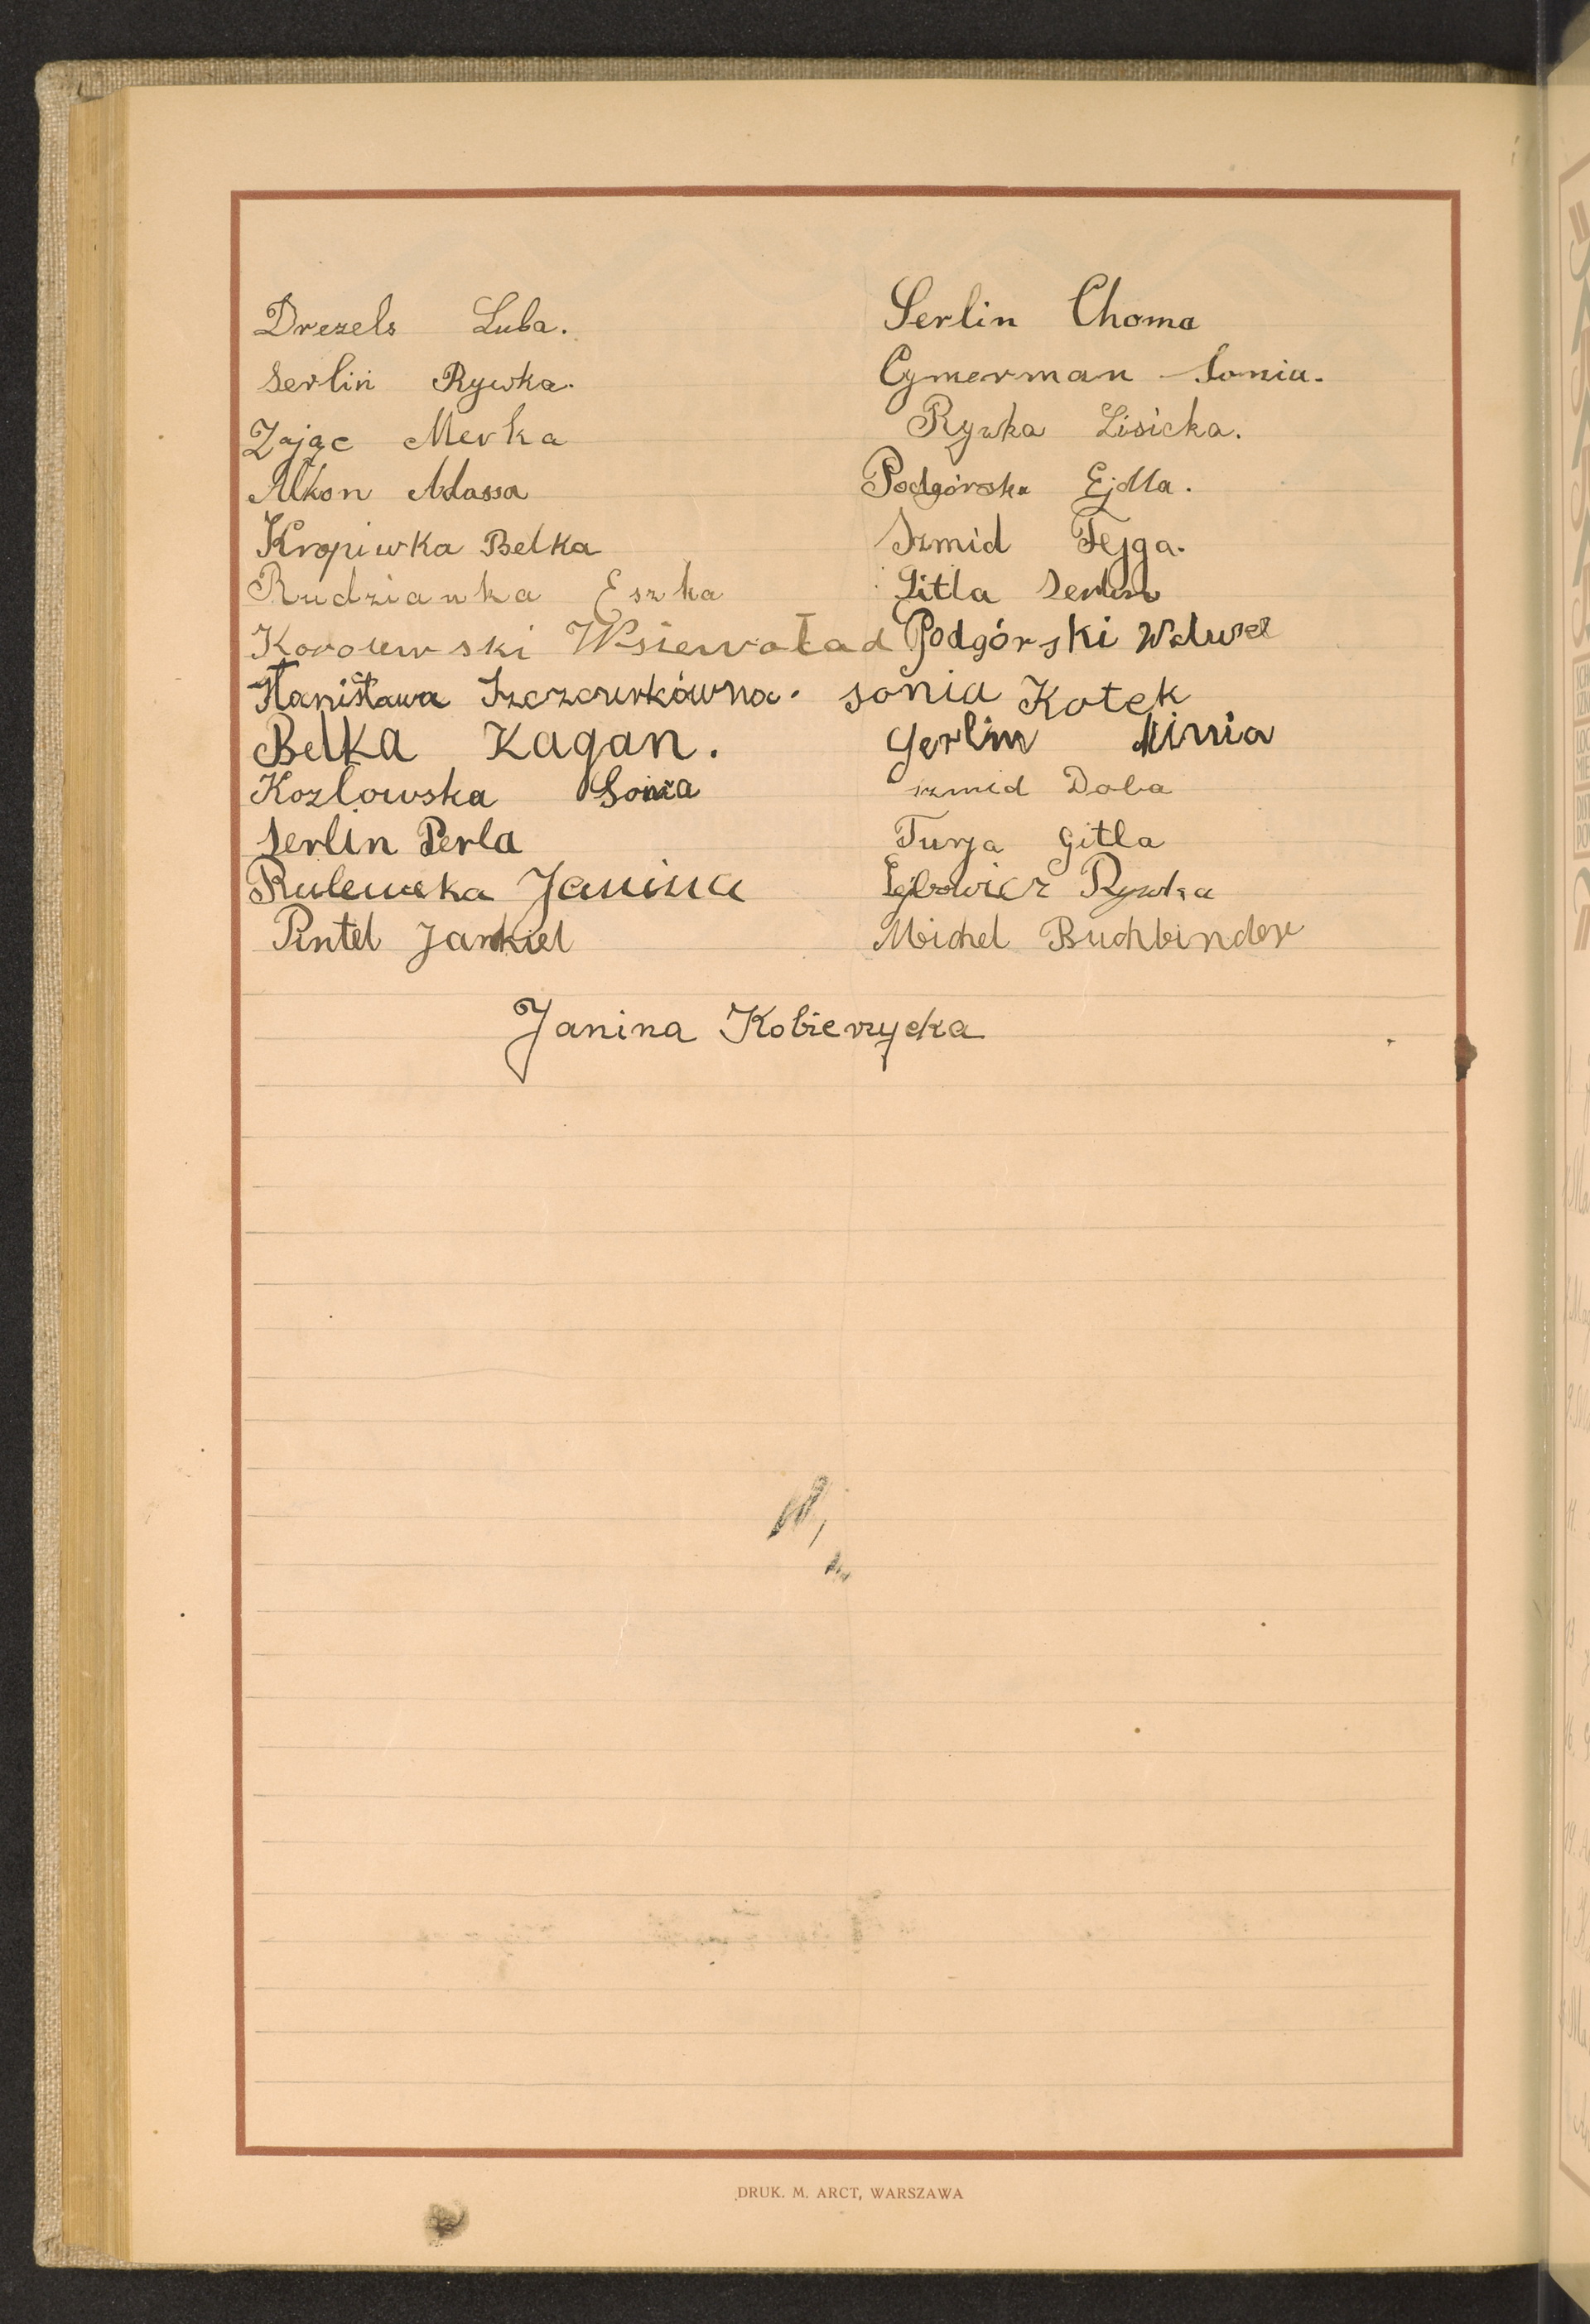 Drezels Luba.
Serlin Rywka.
Zając Merka
Alkon Adassa
Kropiwka Belka
Rudzianka Eszka
Korolewski Wsiewoład
Stanisława Szczurkówna.
Belka Kagan.
Kozlowska Sonia
Serlin Perla
Rulewska Janina
Pintel Jankiel
Serlin Choma
Cymerman Sonia.
Rywka Lisicka.
Podgórska Ejdla.
Szmid Fejga.
Gitla Serlin
Podgórski
sonia Kotek
Serlin Minia
szmid Doba
Turja Gitla
Lejbowicz Rywka
Michel Buchbinder
Janina Kobierzycka
DRUK. M. ARCT, WARSZAWA